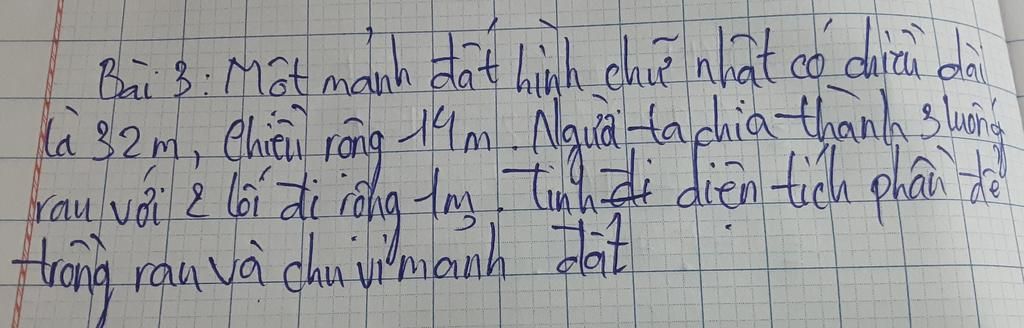 Bài 3: Một mảnh đất hình chữ nhật có chiều dài
là 32m, chiều rộng 14m. Người ta chia thành 3 luống
rau với 2 lối đi rộng 1m. Tính diện tích phần để
trồng rau và chu vi mảnh đất